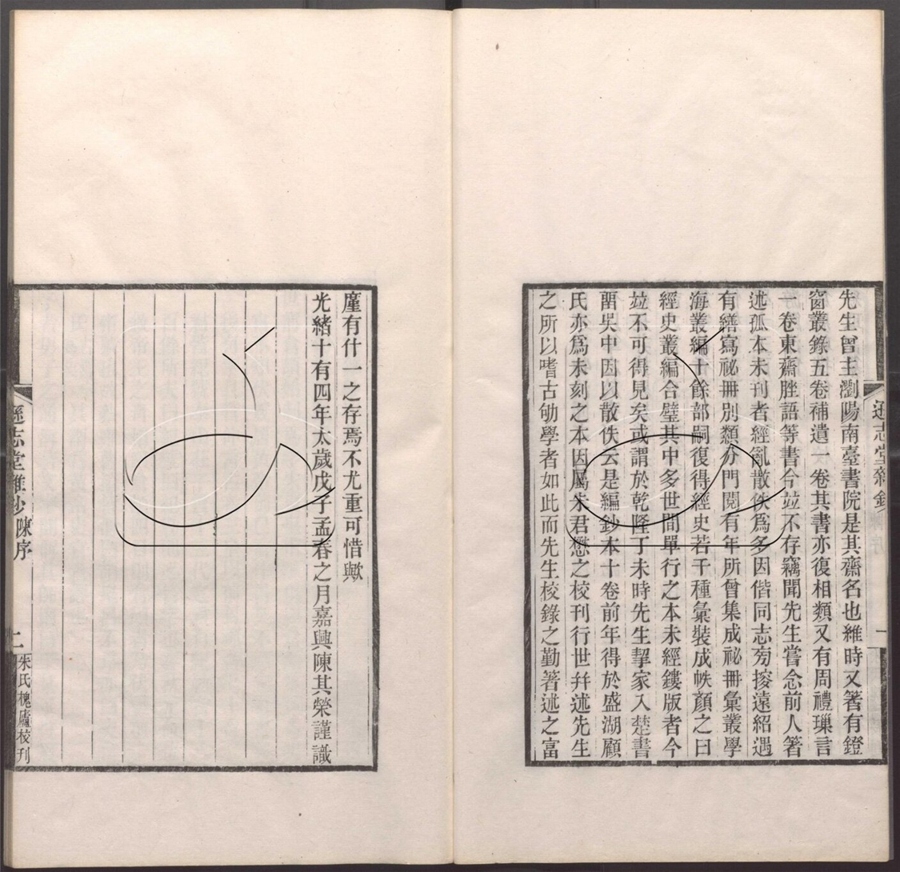 先生曾主瀏陽南臺書院是其齋名也維時又箸有鐙
窗叢錄五卷補遺一卷其書亦復相類又有周禮璅言
一卷東齋脞語等書今竝不存竊聞先生嘗念前人箸
述孤本未刊者經亂散佚爲多因偕同志旁搜遠紹遇
有繕寫祕冊別類分門閱有年所曾集成祕冊彙叢學
海叢編十餘部嗣復得經史若干種彙裝成帙顏之曰
經史叢編合璧其中多世間單行之本未經鏤版者今
竝不可得見矣或謂於乾隆丁未時先生挈家入楚書
䓹吳中因以散佚云是編鈔本十卷前年得於盛湖顧
氏亦爲未刻之本因屬朱君懋之校刊行世幷述先生
之所以嗜古劬學者如此而先生校錄之勤著述之富
遜志堂雜鈔
一
廑有什一之存焉不尤重可惜歟
光緒十有四年太歲戊子孟春之月嘉興陳其榮謹識
遜志堂雜鈔 陳序
二
朱氏槐廬校刊